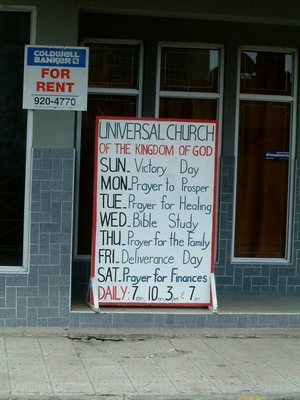 COLDWELL
BANKER
FOR
RENT
920-4770
UNIVERSAL CHURCH
OF THE KINGDOM OF GOD
SUN. Victory Day
MON. Prayer to Prosper
TUE. Prayer for Healing
WED. Bible Study
THU. Prayer for the Family
FRI. Deliverance Day
SAT. Prayer for Finances
DAILY: 7am, 10am, 3pm & 7pm